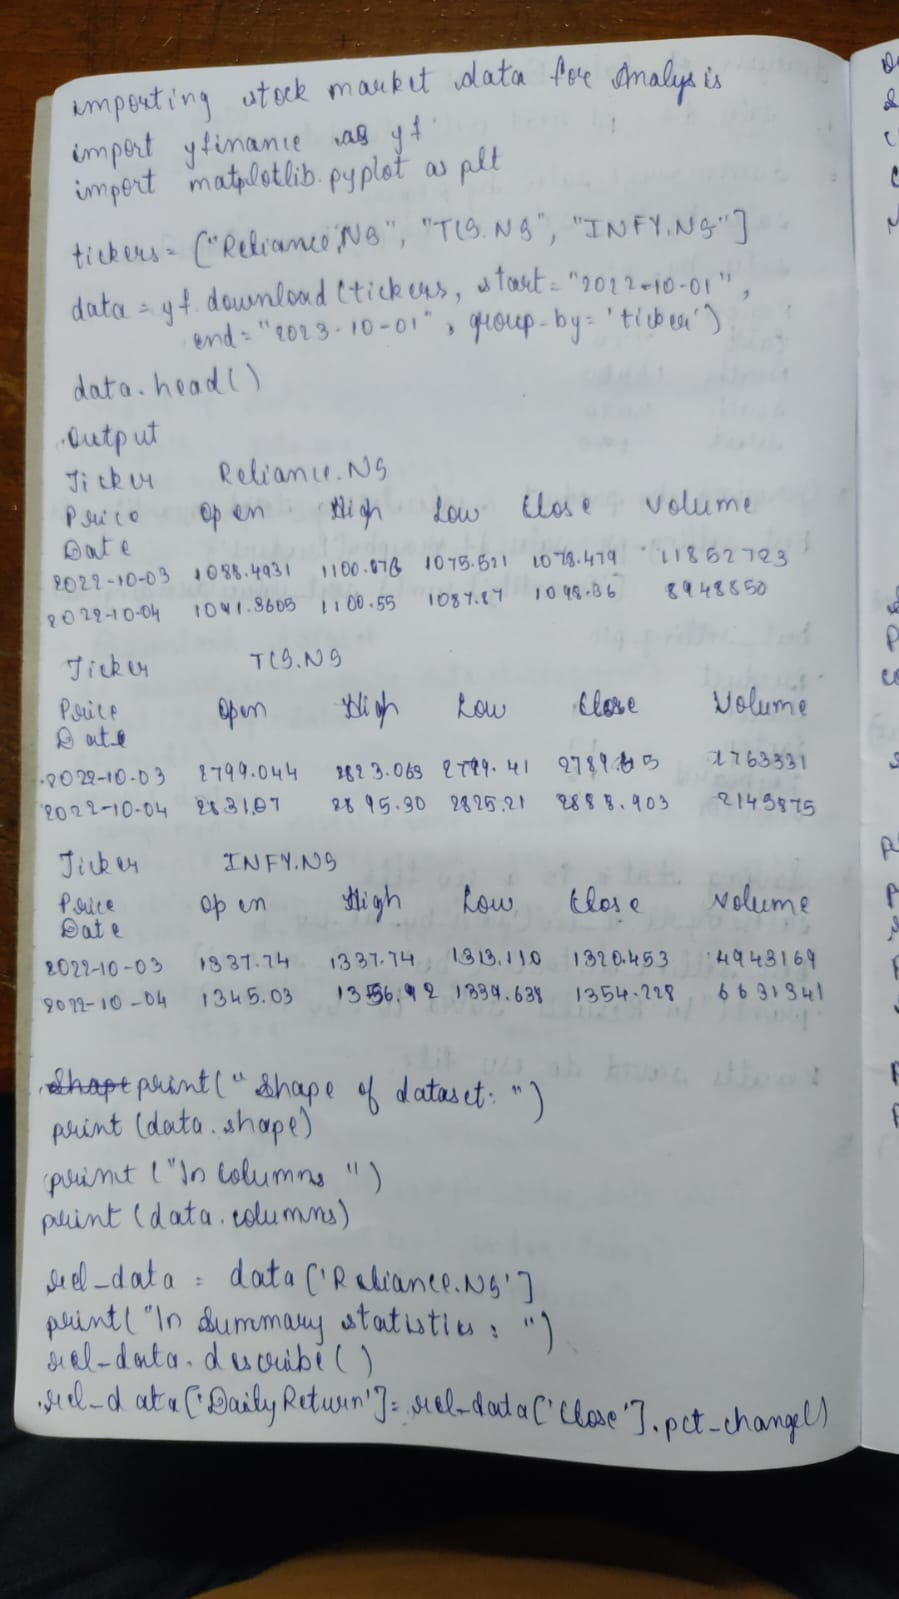 importing stock market data for Analysis
import yfinance as yf
import matplotlib.pyplot as plt
tickers = ["Reliance.NS", "TCS.NS", "INFY.NS"]
data = yf.download(tickers, start = "2022-10-01",
end = "2023-10-01", group-by = 'ticker')
data.head()
Output
Ticker Reliance.NS
Price Open High Low Close Volume
Date
2022-10-03 1088.4931 1100.076 1075.521 1078.479 11852723
2022-10-04 1091.3605 1100.55 1087.87 1098.36 8948850
Ticker TCS.NS
Price Open High Low Close Volume
Date
2022-10-03 2799.044 2823.063 2779.41 1763331
2022-10-04 2831.07 2895.30 2825.21 2888.903 2145875
Ticker INFY.NS
Price Open High Low Close Volume
Date
2022-10-03 1337.74 1337.74 1313.110 1320.453 4943169
2022-10-04 1345.03 1339.638 1354.228 6631341
print(" Shape of dataset: ")
print (data.shape)
print ("\n Columns ")
print (data.columns)
rel_data = data['Reliance.NS']
print("\n Summary statistics : ")
rel_data.describe()
rel_data['Daily Return'] = rel_data['Close'].pct_change()